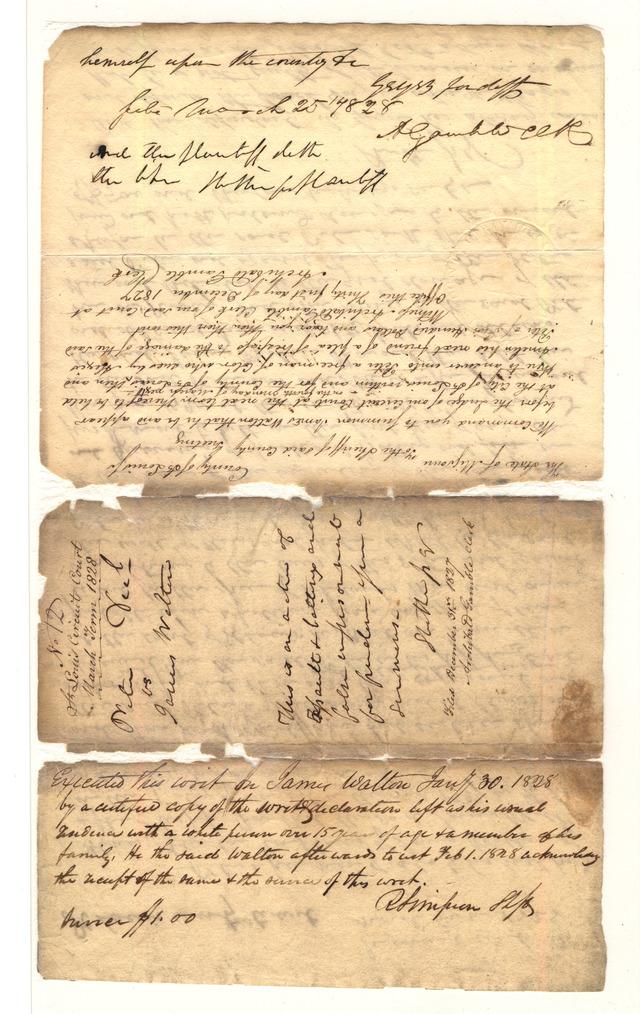 himself upon the country &c
Geyer for deft
filed March 25th 1828
A Gamble Clk
and the plaintiff doth
the like
for plaintiff
The State of Missouri
County of St Louis
To the Sheriff of said County Greeting
We Command you to summon James Walton that he be and appear
before the Judge of our Circuit Court at the next term thereof to be held
at the City of St Louis within and for the County of St Louis
on the fourth monday of March next
then and
there to answer unto Peter a free man of color who sues by
his next friend of a plea of Trespass to the damage of the said
Dollars and have you then there this writ
Witness Archibald Gamble Clerk of our said Court at
Office this Thirty first day of December 1827
Archibald Gamble Clerk
No 12
St Louis Circuit Court
March Term 1828
Peter
vs
James Walton
This is an action of
assault & battery and
false imprisonment
for freedom upon a
Filed December 31st 1827
Archibald Gamble Clerk
Executed this writ on James Walton Jany 30. 1828
by a certified copy of the writ & declaration left at his usual
residence with a white person over 15 years of age & a member of his
family, He the said Walton afterwards to wit Feb 1. 1828 acknowledg
the receipt of the same & the service of this writ.
R Simpson Shff
service $1.00